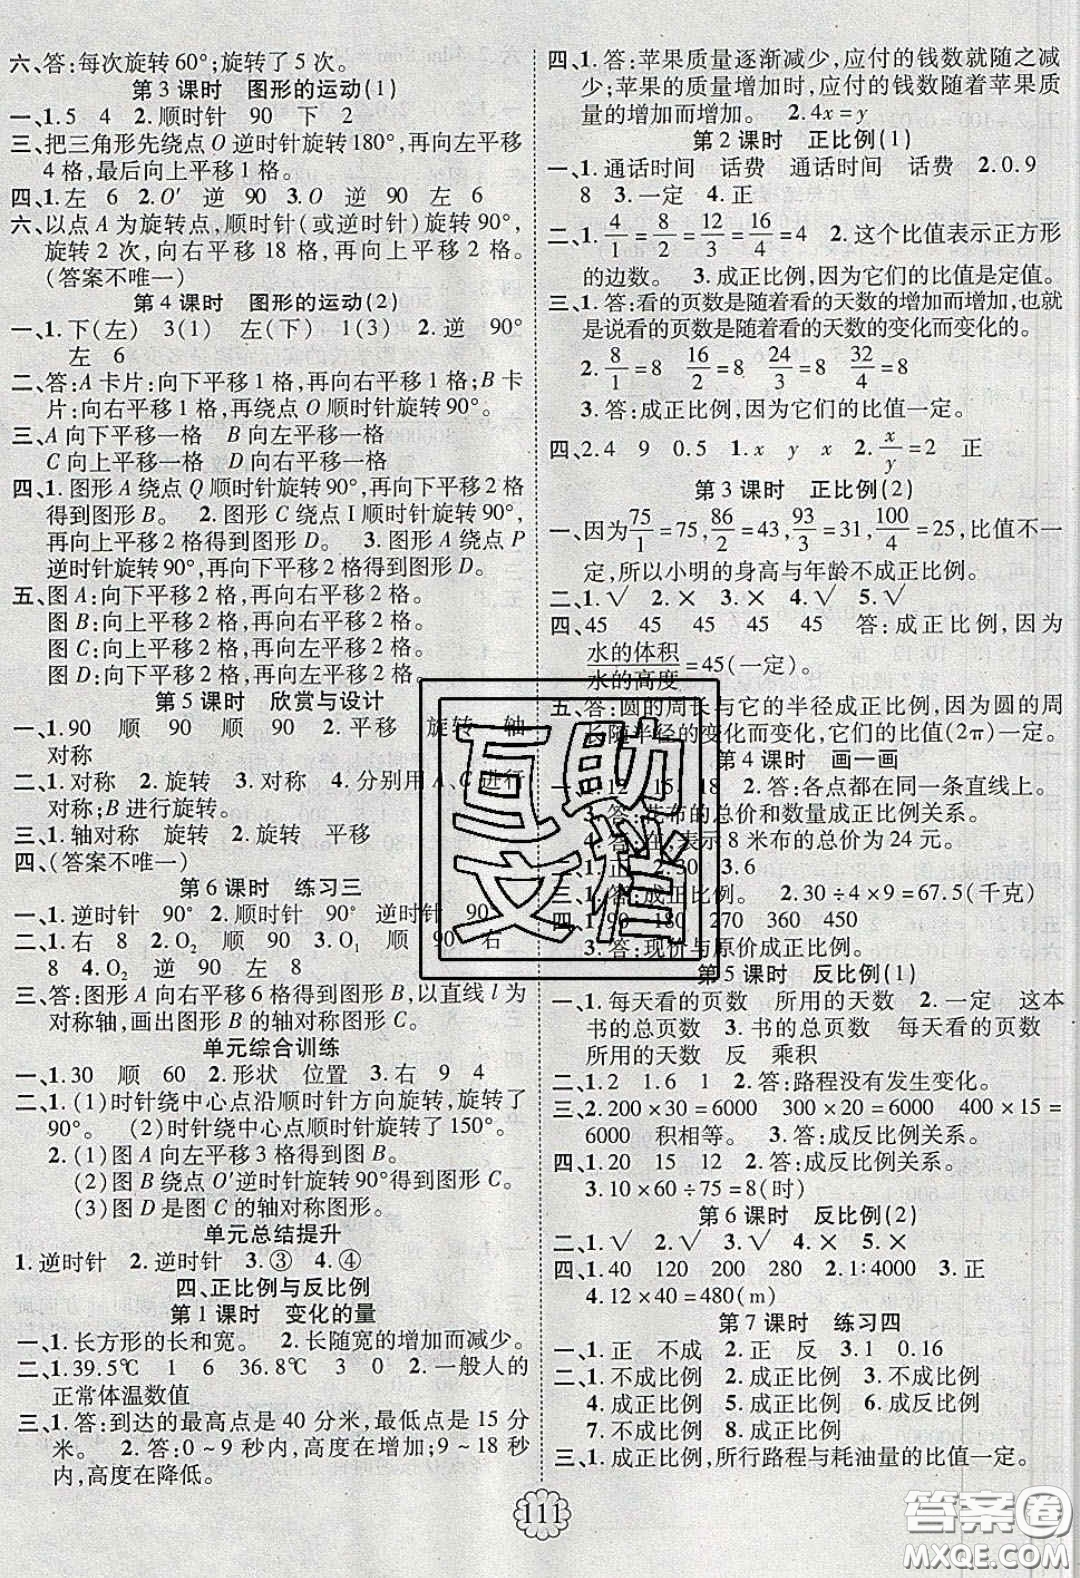 六、答:每次旋转60°;旋转了5次。
第3课时 图形的运动(1)
一、1.5 4 2.顺时针 90 下 2
三、把三角形先绕点O逆时针旋转180°,再向上平移
4格,最后向上平移1格。
四、1.左 6 2.O′ 逆 90 3.O 逆 90 左 6
六、以点A为旋转点,顺时针(或逆时针)旋转90°,
旋转2次,向右平移18格,再向上平移2格。
(答案不唯一)
第4课时 图形的运动(2)
一、1.下(左) 3(1) 左(下) 1(3) 2.逆 90°
左 6
二、答:A卡片:向下平移1格,再向右平移1格;B卡
片:向右平移1格,再绕点O顺时针旋转90°。
三、A向下平移一格 B向左平移一格
C向上平移一格 D向右平移一格
四、1.图形A绕点Q顺时针旋转90°,再向下平移2格
得到图形B。 2.图形C绕点I顺时针旋转90°,
再向上平移2格得到图形D。 3.图形A绕点P
逆时针旋转90°,再向下平移2格得到图形D。
五、图A:向下平移2格,再向右平移2格。
图B:向上平移2格,再向右平移2格。
图C:向上平移2格,再向左平移2格。
图D:向下平移2格,再向左平移2格。
第5课时 欣赏与设计
一、1.90 顺 90 顺 90 2.平移 旋转 轴
对称
二、1.对称 2.旋转 3.对称 4.分别用A、C进行
对称;B进行旋转。
三、1.轴对称 旋转 2.旋转 平移
四、(答案不唯一)
第6课时 练习三
一、1.逆时针 90° 2.顺时针 90° 逆时针 90°
二、1.右 8 2.O₂ 顺 90 3.O₁ 顺 90 右
8 4.O₂ 逆 90 左 8
三、答:图形A向右平移6格得到图形B,以直线l为
对称轴,画出图形B的轴对称图形C。
单元综合训练
一、1.30 顺 60 2.形状 位置 3.右 9 4
二、1.(1)时针绕中心点沿顺时针方向旋转,旋转了
90°。 (2)时针绕中心点顺时针旋转了150°。
2.(1)图A向左平移3格得到图形B。
(2)图B绕点O′逆时针旋转90°得到图形C。
(3)图D是图C的轴对称图形。
单元总结提升
1.逆时针 2.逆时针 3.③ 4.④
四、正比例与反比例
第1课时 变化的量
一、1.长方形的长和宽。 2.长随宽的增加而减少。
二、1.39.5℃ 1 6 36.8℃ 3 0 2.一般人的
正常体温数值
三、1.答:到达的最高点是40分米,最低点是15分
米。 2.答:0~9秒内,高度在增加;9~18秒
内,高度在降低。
四、1.答:苹果质量逐渐减少,应付的钱数就随之减
少;苹果的质量增加时,应付的钱数随着苹果质
量的增加而增加。 2.4x=y
第2课时 正比例(1)
一、1.通话时间 话费 通话时间 话费 2.0.9
8 3.一定 4.正
二、1.4/1=8/2=12/3=16/4=4 2.这个比值表示正方形
的边数。 3.成正比例,因为它们的比值是定值。
三、1.答:看的页数是随着看的天数的增加而增加,也就
是说看的页数是随着看的天数的变化而变化的。
2.8/1=8 16/2=8 24/3=8 32/4=8
3.答:成正比例,因为它们的比值一定。
四、2.4 9 0.5 1.x y x 2.x/y=2 正
第3课时 正比例(2)
一、因为75/1=75,86/2=43,93/3=31,100/4=25,比值不一
定,所以小明的身高与年龄不成正比例。
二、1.√ 2.× 3.× 4.√ 5.√
四、45 45 45 45 45 答:成正比例,因为
水的体积/水的高度=45(一定)。
五、答:圆的周长与它的半径成正比例,因为圆的周
长随半径的变化而变化,它们的比值(2π)一定。
第4课时 画一画
一、1.12 15 18 2.答:各点都在同一条直线上。
3.答:花布的总价和数量成正比例关系。
4.答:在;表示8米布的总价为24元。
二、1.正 2.30 3.6
三、1.答:成正比例。 2.30÷4×9=67.5(千克)
四、1.90 180 270 360 450
3.答:现价与原价成正比例。
第5课时 反比例(1)
一、1.每天看的页数 所用的天数 2.一定 这本
书的总页数 3.书的总页数 每天看的页数
所用的天数 反 乘积
二、1.2 1.6 1 2.答:路程没有发生变化。
三、2.200×30=6000 300×20=6000 400×15=
6000 积相等。 3.答:成反比例关系。
四、1.20 15 12 2.答:成反比例关系。
3.10×60÷75=8(时)
第6课时 反比例(2)
二、1.√ 2.√ 3.× 4.√ 5.×
四、1.40 120 200 280 2.1:4000 3.正
4.12×40=480(m)
第7课时 练习四
一、1.正 不成 2.正 反 3.1 0.16
二、1.不成比例 2.成正比例 3.不成比例
4.成正比例 5.成正比例 6.成反比例
7.不成比例 8.成正比例
三、1.成正比例,所行路程与耗油量的比值一定。
111
互助
文档
答案圈
MXQE.COM